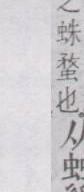 之蛛蝥也。从